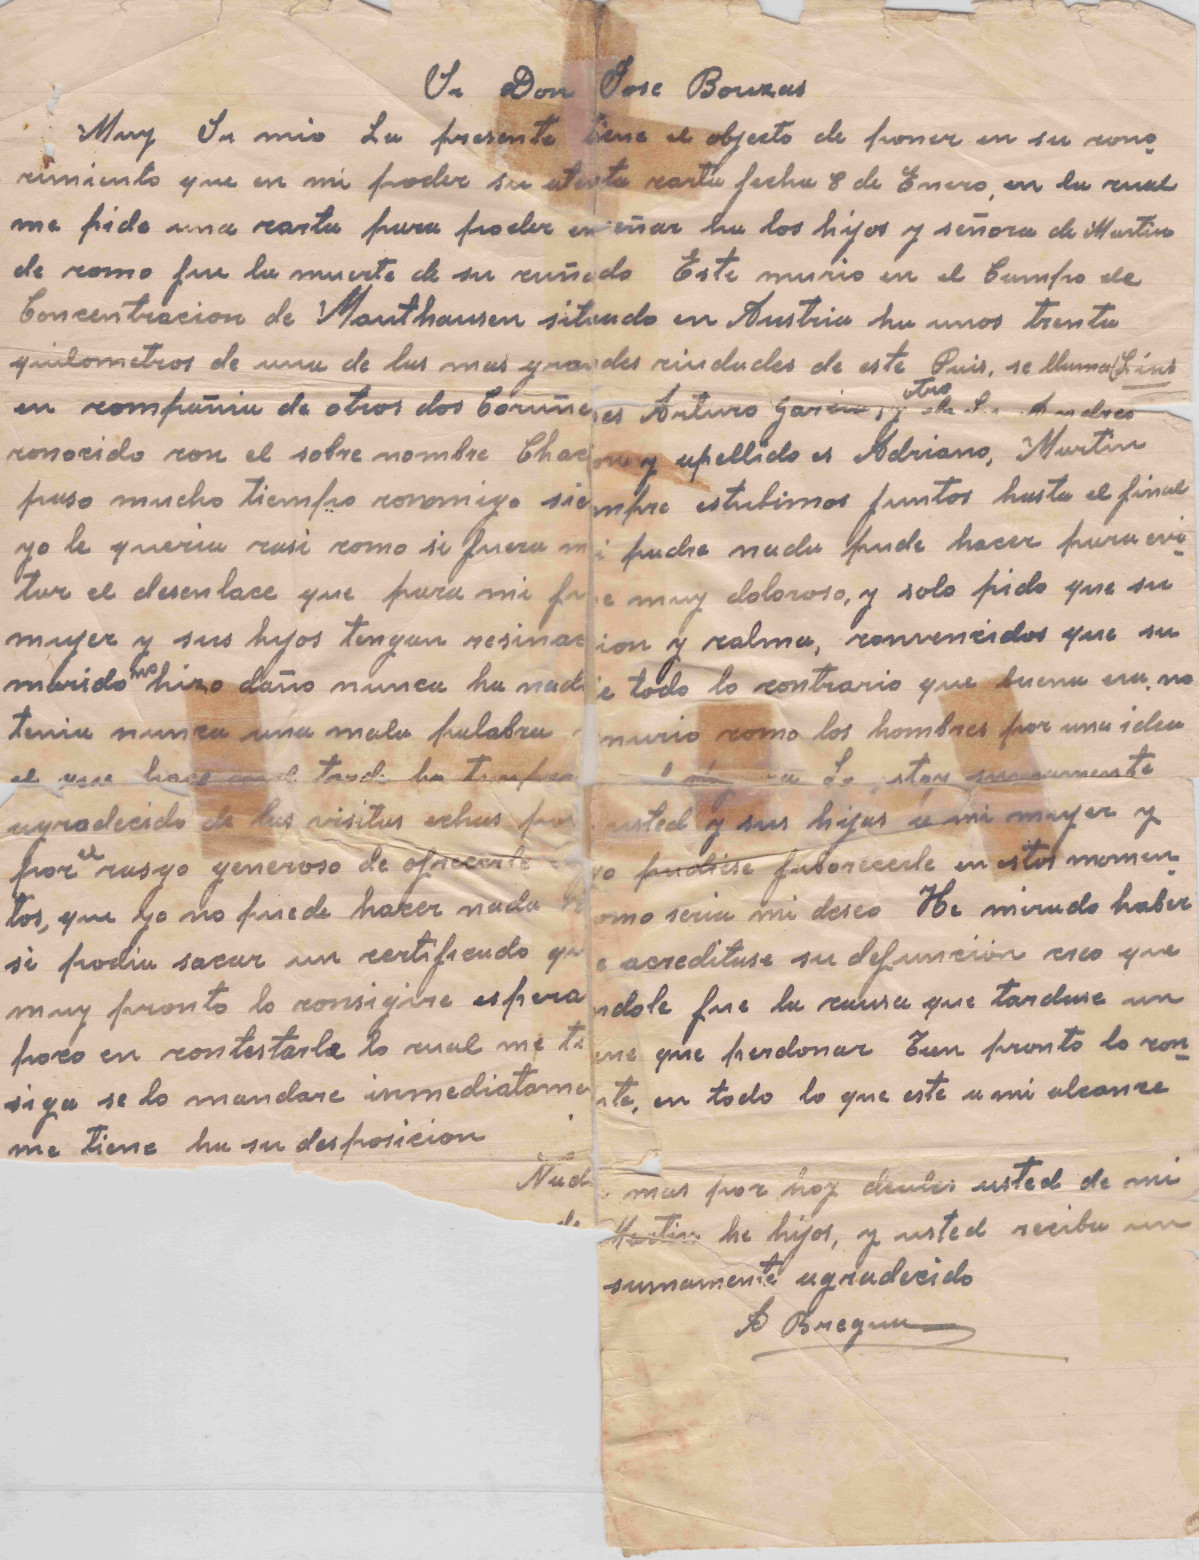 Sr Don Jose Bouzas
Muy Sr mio La presente tiene el objecto de poner en su cono-
cimiento que en mi poder su atenta carta fecha 8 de Enero, en la cual
me pide una carta para poder enseñar ha los hijos y señora de Martin
de como fue la muerte de su cuñado Este murio en el Campo de
Concentracion de Mauthausen situado en Austria ha unos trenta
quilometros de una de las mas grandes ciudades de este Pais, se llama (Lins
en compañia de otros dos Coruñeses Arturo Garcia, y otro Andres
conocido con el sobre nombre Chacon y apellido es Adriano, Martin
paso mucho tiempo conmigo siempre estubimos juntos hasta el final
yo le queria casi como si fuera mi padre nada pude hacer para evi-
tar el desenlace que para mi fue muy doloroso, y solo pido que su
mujer y sus hijos tengan resinacion y calma, convencidos que su
marido no hizo daño nunca ha nadie todo lo contrario que buena era, no
tenia nunca una mala palabra murio como los hombres por una idea
el que hace tarde ha estoy sumamente
agradecido de las visitas echas por usted y sus hijas a mi mujer y
por el rasgo generoso de ofrecerle yo pudiese faborecerle en estos momen-
tos, que yo no puede hacer nada como seria mi deseo He mirado haber
si podia sacar un certificado que acreditase su defuncion creo que
muy pronto lo consigire esperandole fue la causa que tardase un
poco en contestarle lo cual me tiene que perdonar Tan pronto lo con-
siga se lo mandare inmediatamente, en todo lo que este a mi alcance
me tiene ha su desposicion
Nada mas por hoy usted de mi
de Martin he hijos, y usted reciba un
sumamente agradecido
A Bregua